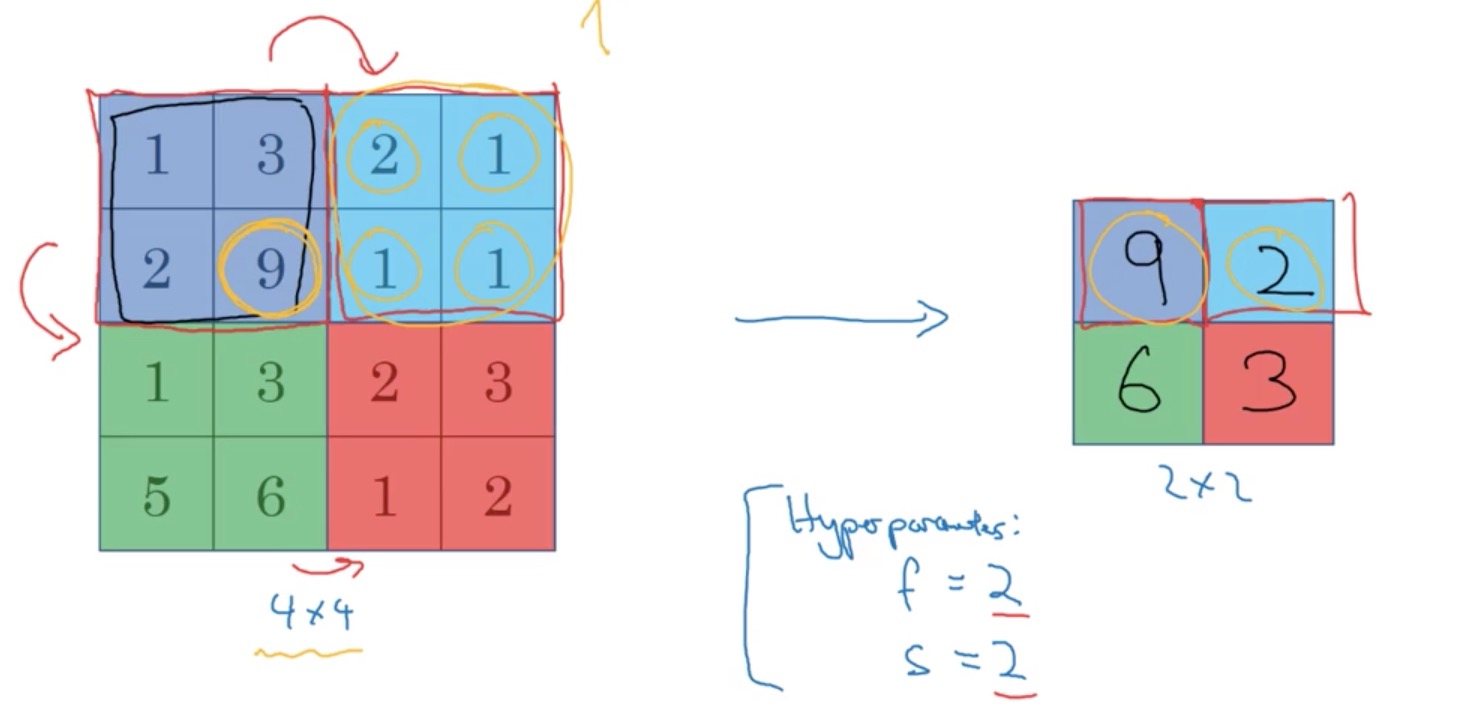 1 3 2 1
2 9 1 1
1 3 2 3
5 6 1 2
4×4
9 2
6 3
2×2
Hyperparameters:
f = 2
s = 2